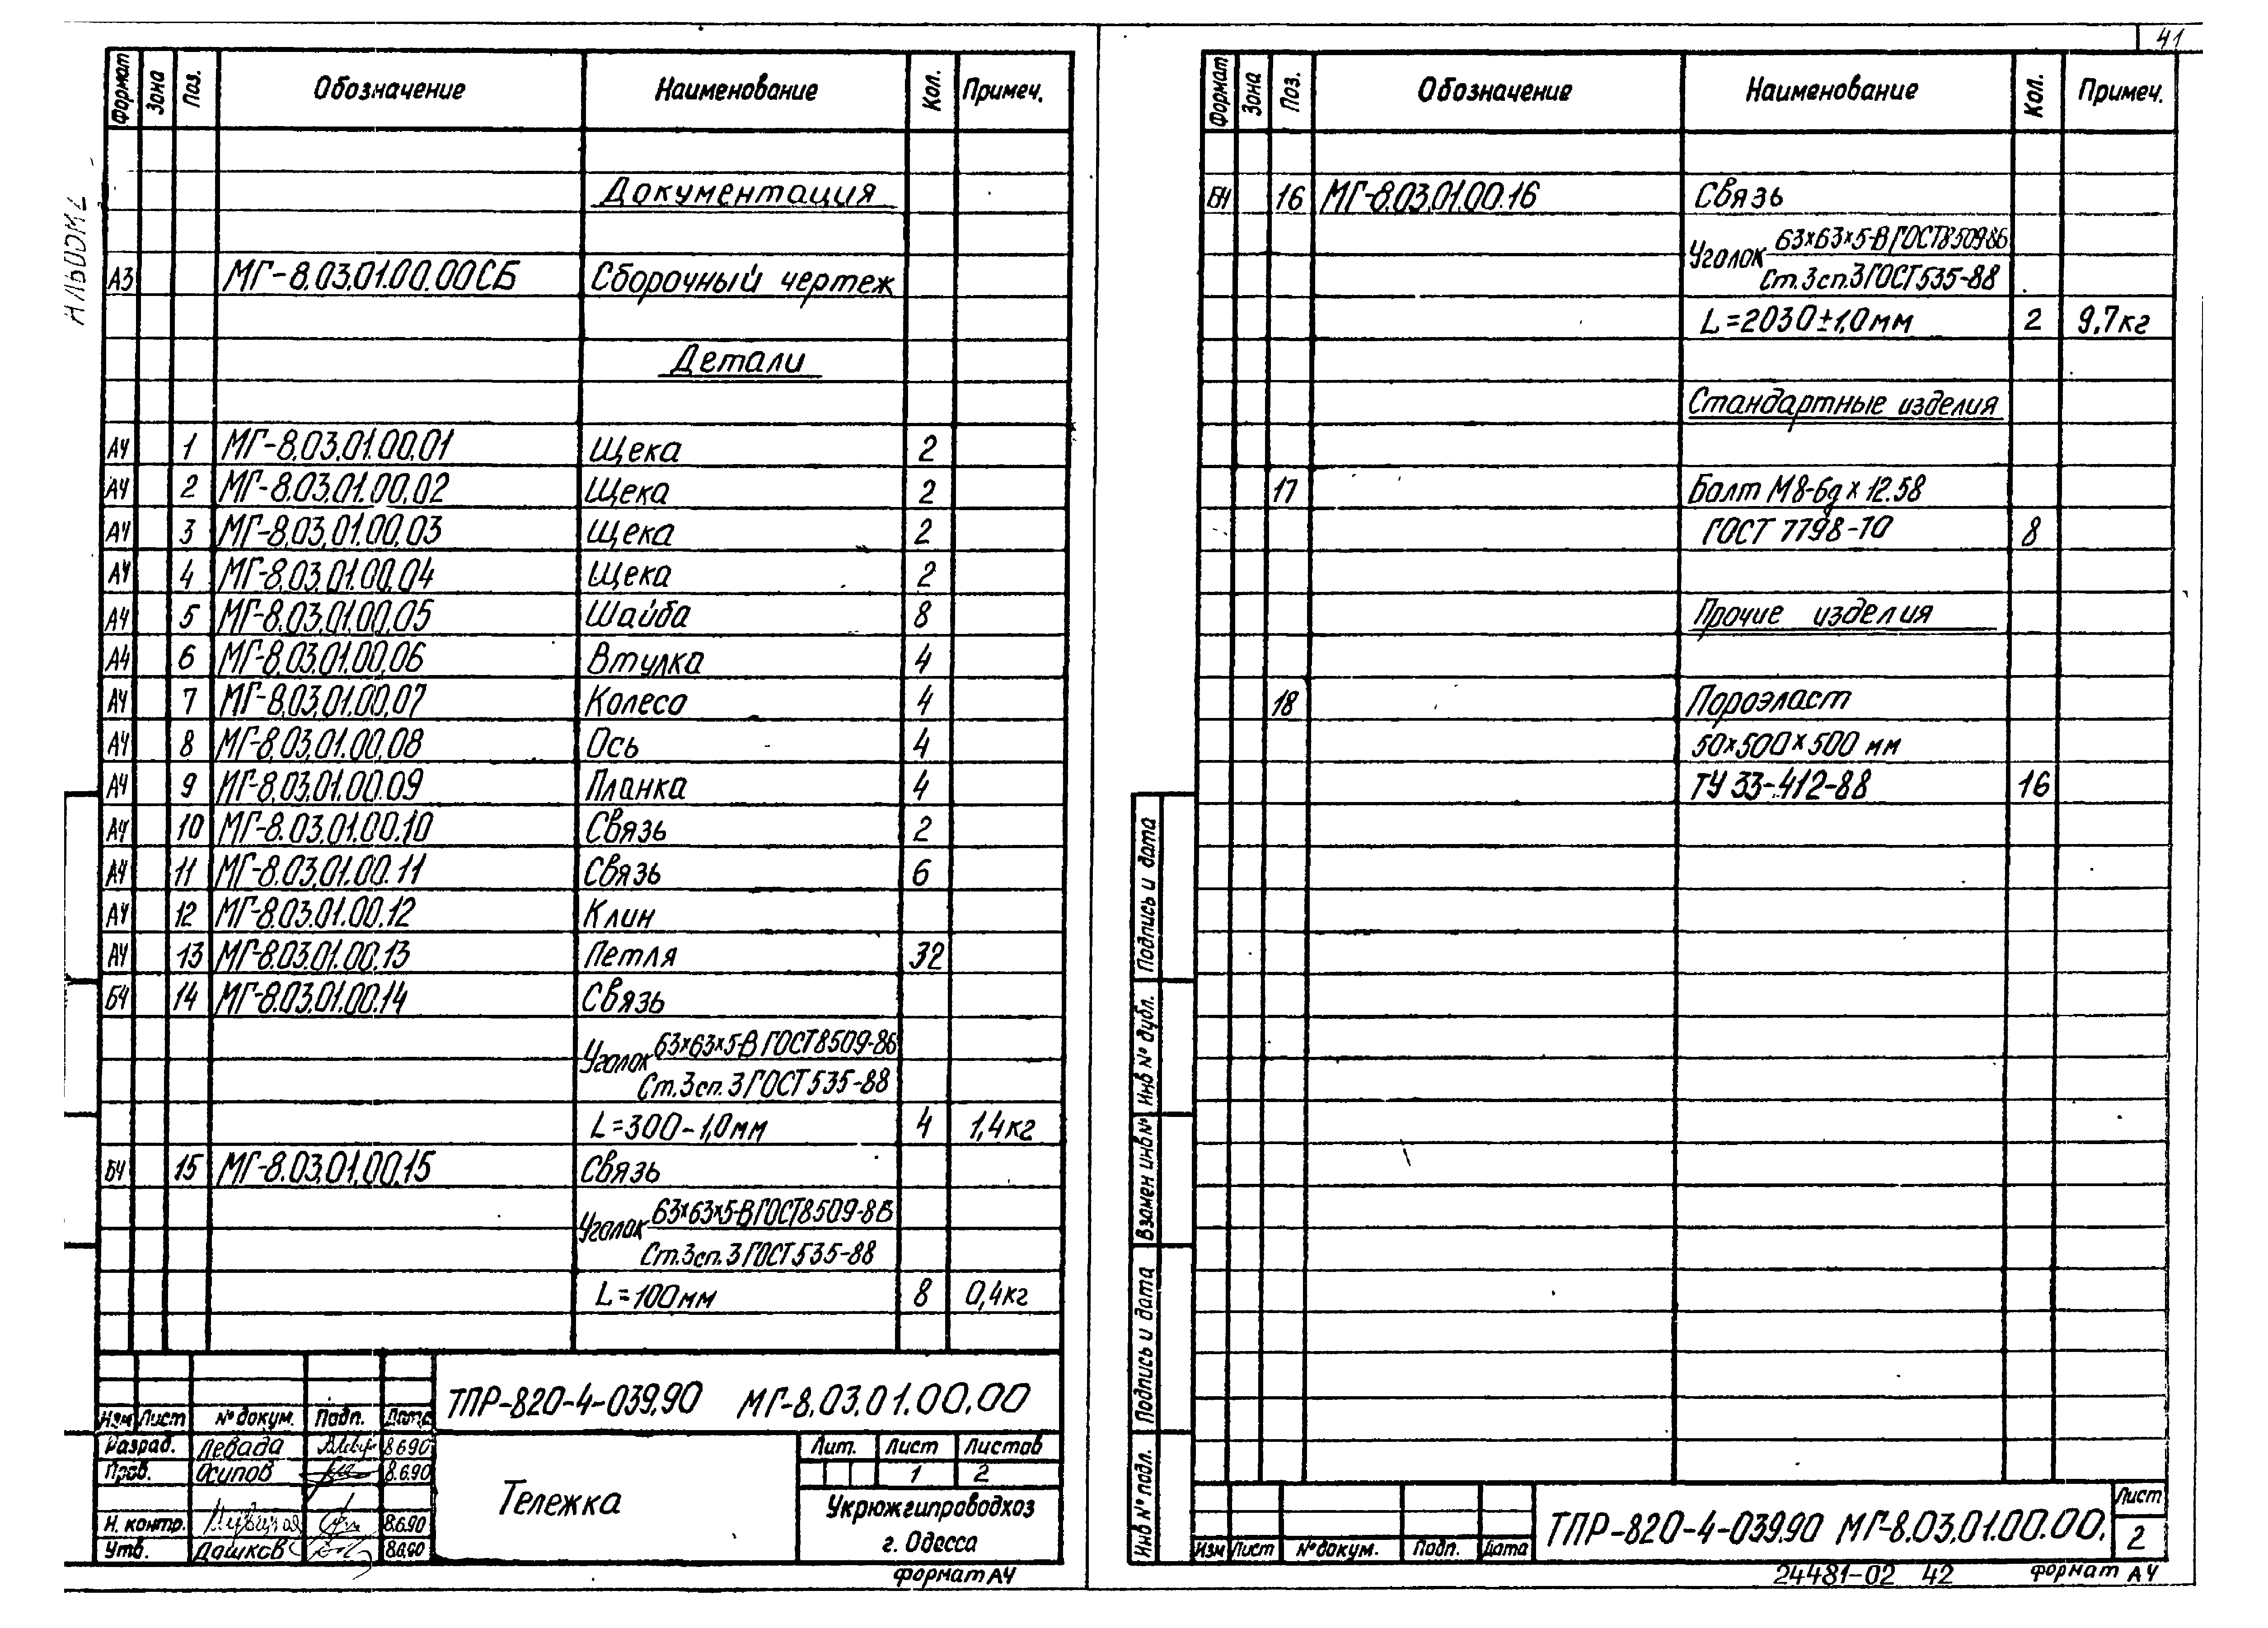 41
Альбом 2
Формат Зона Поз. Обозначение Наименование Кол. Примеч.
Документация
А3 МГ-8.03.01.00.00СБ Сборочный чертеж
Детали
А4 1 МГ-8.03.01.00.01 Щека 2
А4 2 МГ-8.03.01.00.02 Щека 2
А4 3 МГ-8.03.01.00.03 Щека 2
А4 4 МГ-8.03.01.00.04 Щека 2
А4 5 МГ-8.03.01.00.05 Шайба 8
А4 6 МГ-8.03.01.00.06 Втулка 4
А4 7 МГ-8.03.01.00.07 Колесо 4
А4 8 МГ-8.03.01.00.08 Ось 4
А4 9 МГ-8.03.01.00.09 Планка 4
А4 10 МГ-8.03.01.00.10 Связь 2
А4 11 МГ-8.03.01.00.11 Связь 6
А4 12 МГ-8.03.01.00.12 Клин
А4 13 МГ-8.03.01.00.13 Петля 32
БЧ 14 МГ-8.03.01.00.14 Связь
Уголок 63×63×5-В ГОСТ 8509-86
Ст.3сп.3 ГОСТ 535-88
L=300-1,0мм 4 1,4кг
БЧ 15 МГ-8.03.01.00.15 Связь
Уголок 63×63×5-В ГОСТ 8509-86
Ст.3сп.3 ГОСТ 535-88
L=100мм 8 0,4кг
ТПР-820-4-039.90 МГ-8.03.01.00.00
Изм Лист № докум. Подп. Дата
Разраб. Левада 8.6.90
Пров. Осипов 8.6.90
Н. контр. 8.6.90
Утв. Дашков 8.6.90
Тележка
Лит. Лист Листов
1 2
Укрюжгипроводхоз
г. Одесса
формат А4
Формат Зона Поз. Обозначение Наименование Кол. Примеч.
БЧ 16 МГ-8.03.01.00.16 Связь
Уголок 63×63×5-В ГОСТ 8509 86
Ст.3сп.3 ГОСТ 535-88
L=2030±1,0мм 2 9,7кг
Стандартные изделия
17 Болт М8-6g×12.58
ГОСТ 7798-70 8
Прочие изделия
18 Пороэласт
50×500×500 мм
ТУ 33-412-88 16
Подпись и дата
Инв № дубл.
Взамен инв №
Подпись и дата
Инв № подл.
Изм Лист № докум. Подп. Дата
ТПР-820-4-039.90 МГ-8.03.01.00.00.
Лист
2
24481-02 42
формат А4